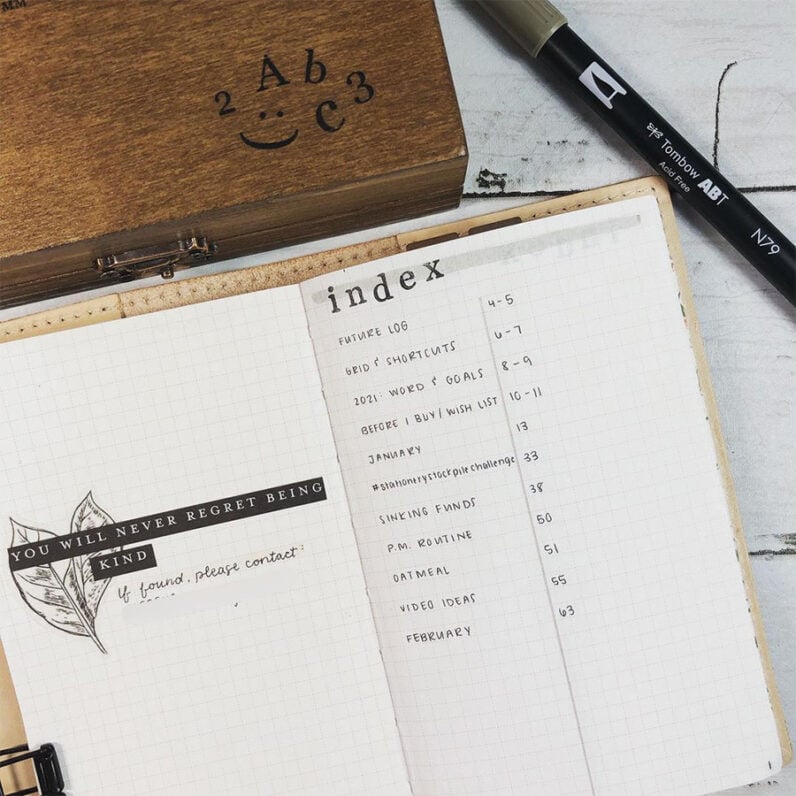 MM
2 A b c 3
Tombow ABT
Acid Free
N79
YOU WILL NEVER REGRET BEING
KIND
If found, please contact:
index
FUTURE LOG 4-5
GRID & SHORTCUTS 6-7
2021: WORD & GOALS 8-9
BEFORE I BUY/WISH LIST 10-11
JANUARY 13
#stationerystockpilechallenge 33
SINKING FUNDS 38
P.M. ROUTINE 50
OATMEAL 51
VIDEO IDEAS 55
FEBRUARY 63
1